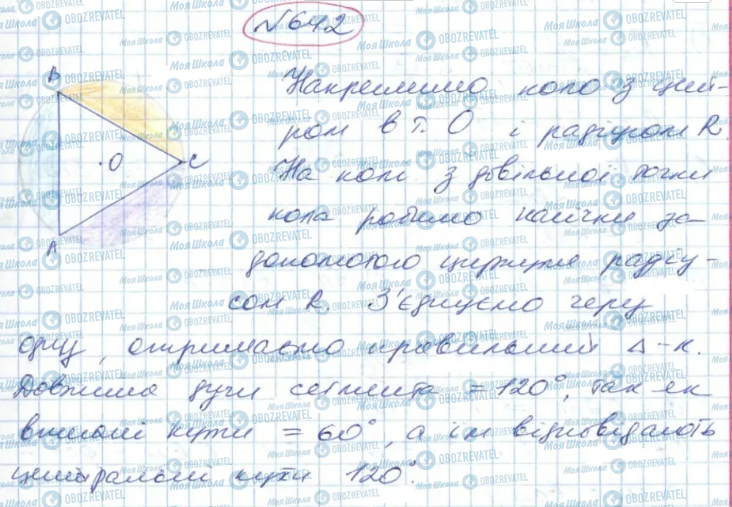 №642
B
Накреслимо коло з цен-
ром в т. О і радіусом R.
·O
C
На колі з довільної точки
кола робимо насічки за
A
допомогою циркуля радіу-
сом R. З'єднуємо через
одну, отримаємо правильний Δ-к.
Довжина дуги сегмента = 120°, так як
вписані кути = 60°, а їм відповідають
центральні кути 120°.